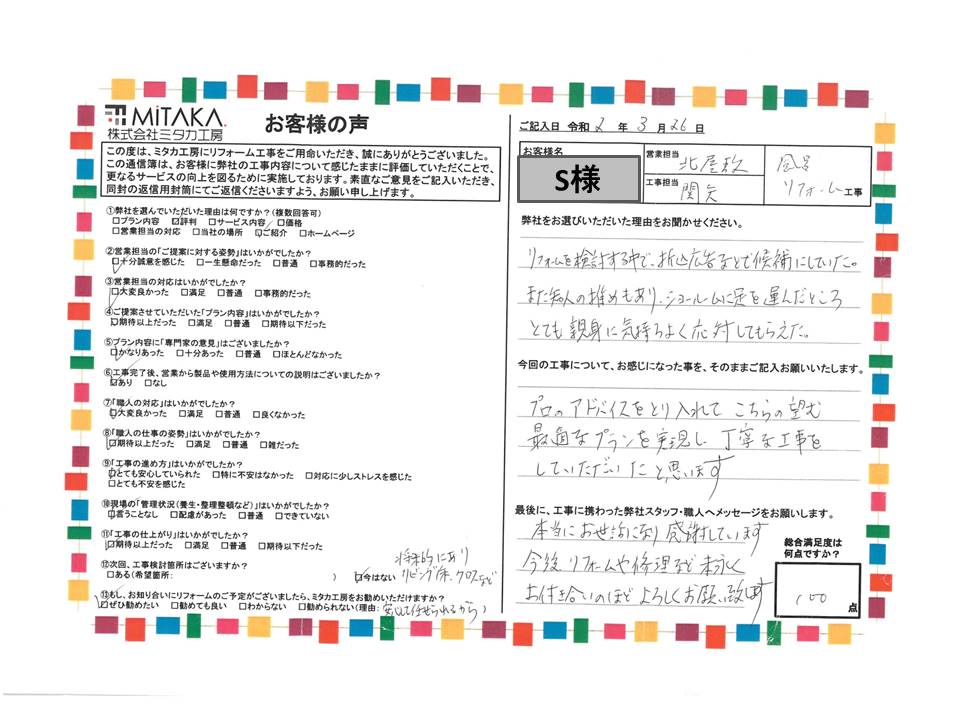 MiTAKA.
株式会社ミタカ工房
お客様の声
この度は、ミタカ工房にリフォーム工事をご用命いただき、誠にありがとうございました。
この通信簿は、お客様に弊社の工事内容について感じたままに評価していただくことで、
更なるサービスの向上を図るために実施しております。素直なご意見をご記入いただき、
同封の返信用封筒にてご返信くださいますよう、お願い申し上げます。
①弊社を選んでいただいた理由は何ですか?(複数回答可)
□プラン内容 ☑評判 □サービス内容 □価格
□営業担当の対応 □当社の場所 ☑ご紹介 □ホームページ
②営業担当の「ご提案に対する姿勢」はいかがでしたか?
☑十分誠意を感じた □一生懸命だった □普通 □事務的だった
③営業担当の対応はいかがでしたか?
☑大変良かった □満足 □普通 □事務的だった
④ご提案させていただいた「プラン内容」はいかがでしたか?
☑期待以上だった □満足 □普通 □期待以下だった
⑤プラン内容に「専門家の意見」はございましたか?
☑かなりあった □十分あった □普通 □ほとんどなかった
⑥工事完了後、営業から製品や使用方法についての説明はございましたか?
☑あり □なし
⑦「職人の対応」はいかがでしたか?
☑大変良かった □満足 □普通 □良くなかった
⑧「職人の仕事の姿勢」はいかがでしたか?
☑期待以上だった □満足 □普通 □雑だった
⑨「工事の進め方」はいかがでしたか?
☑とても安心していられた □特に不安はなかった □対応に少しストレスを感じた
□とても不安を感じた
⑩現場の「管理状況(養生・整理整頓など)」はいかがでしたか?
☑言うことなし □配慮があった □普通 □できていない
⑪「工事の仕上がり」はいかがでしたか?
☑期待以上だった □満足 □普通 □期待以下だった
⑫次回、工事検討箇所はございますか?
将来的にあり
□ある(希望箇所: ) ☑今はない リビング床、クロスなど
⑬もし、お知り合いにリフォームのご予定がございましたら、ミタカ工房をお勧めいただけますか?
☑ぜひ勧めたい □勧めても良い □わからない □勧められない(理由:安心して任せられるから)
ご記入日 令和 2 年 3 月 26 日
お客様名
S様
営業担当 北屋敷
工事担当 関矢
風呂
リフォーム 工事
弊社をお選びいただいた理由をお聞かせください。
リフォームを検討する中で、折込広告などで候補にしていた。
また知人の推めもあり、ショールームに足を運んだところ
とても親身に気持ちよく応対してもらえた。
今回の工事について、お感じになった事を、そのままご記入お願いいたします。
プロのアドバイスをとり入れて こちらの望む
最適なプランを実現し 丁寧な工事を
していただいたと思います
最後に、工事に携わった弊社スタッフ・職人へメッセージをお願いします。
本当にお世話になり 感謝しています
今後リフォームや修理など 末永く
お付き合いのほど よろしくお願い致します
総合満足度は
何点ですか?
100 点